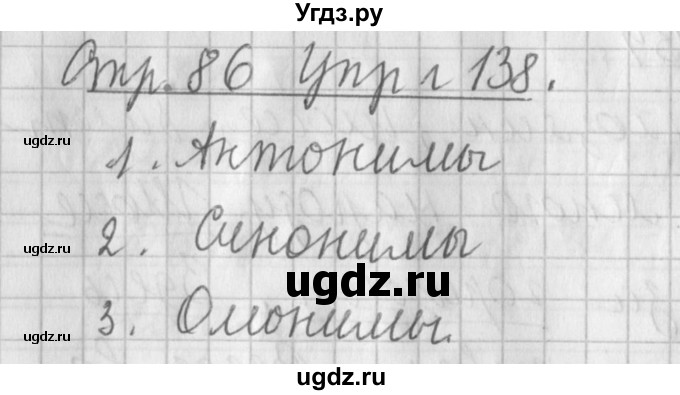 Угдз.ру
Стр. 86 Упр г 138.
ugdz.ru
1. Антонимы
ugdz.ru
2. Синонимы
ugdz.ru
ugdz.ru
3. Омонимы.
ugdz.ru